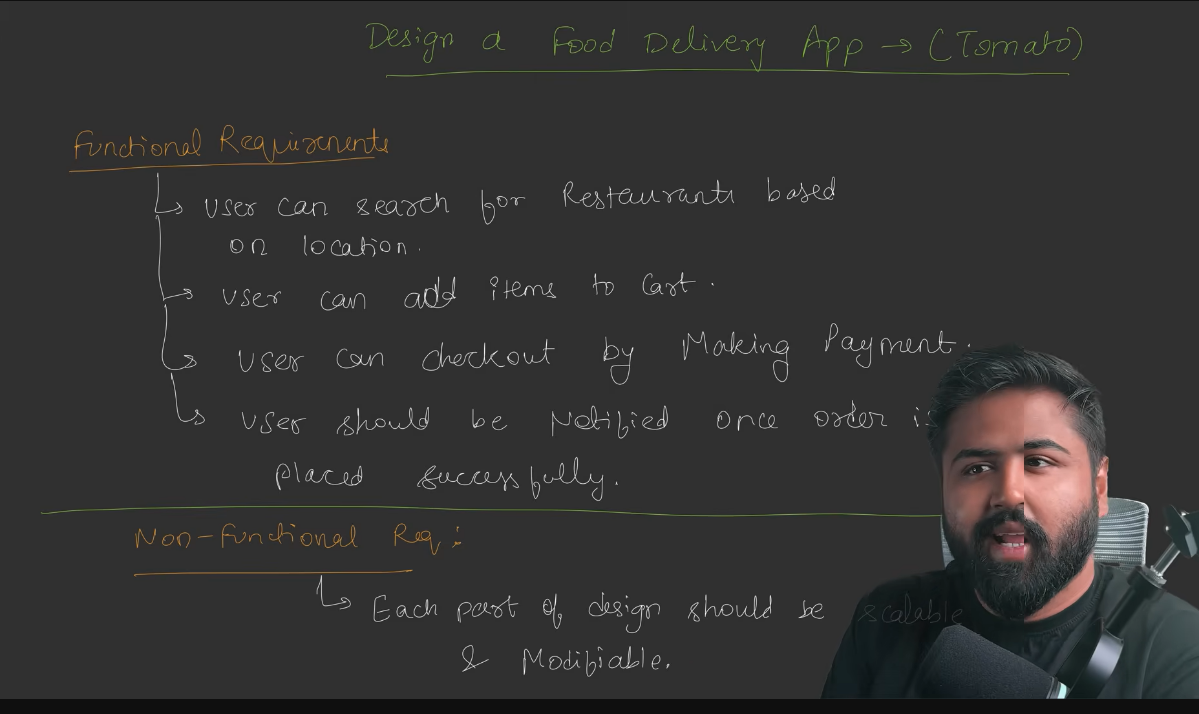 Design a Food Delivery App → (Tomato)
Functional Requirements
↳ User can search for Restaurants based
on location.
→ User can add items to Cart.
↳ User can checkout by Making Payment.
↳ User should be Notified once order is
placed successfully.
Non-Functional Req:
↳ Each part of design should be scalable
& Modifiable.